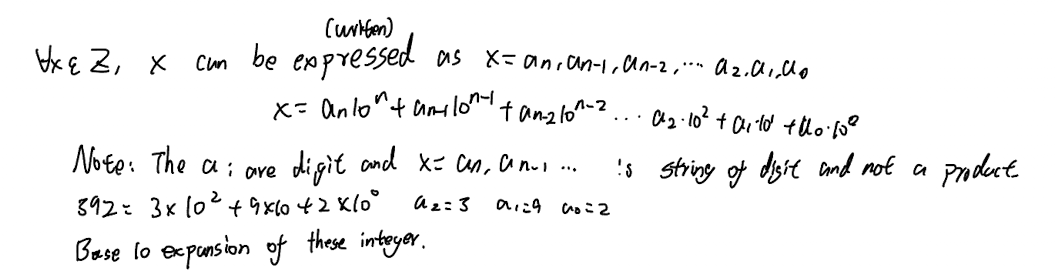 (written)
∀x ∈ Z, x can be expressed as x = aₙ, aₙ₋₁, aₙ₋₂, ... a₂, a₁, a₀
x = aₙ10ⁿ + aₙ₋₁10ⁿ⁻¹ + aₙ₋₂10ⁿ⁻² ... a₂·10² + a₁·10¹ + a₀·10⁰
Note: The aᵢ are digit and x = aₙ, aₙ₋₁ ... is string of digit and not a product
392 = 3×10² + 9×10 + 2×10⁰ a₂=3 a₁=9 a₀=2
Base 10 expansion of these integer.